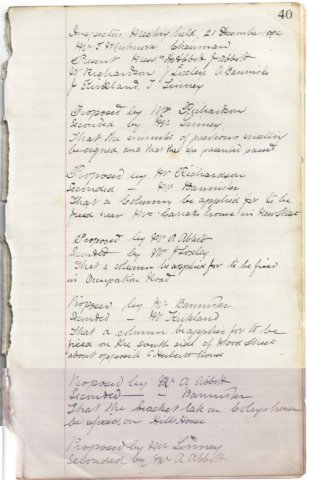 40
Inspectors Meeting held, 21 December
Mr Chairman
Present Abbott J Abbott
W Richardson J Loxley A Bannister
J Kirkland, T Linney
Proposed by Mr Richardson
Seconded by Mr Linney
That the minutes of previous meeting
be signed, and that the presented passed
Proposed by Mr Richardson
Seconded - Mr Bannister
That a Column be applied for to be
fixed near Mrs house in New Street
Proposed by Mr A. Abbott
Seconded by Mr J Loxley
That a column be applied for to be fixed
in Occupation Road
Proposed by Mr Bannister
Seconded - Mr Kirkland
That a column be applied for to be
fixed on the south side of Wood Street
about opposite Herberts House
Proposed by Mr A. Abbott
Seconded - Bannister
That the bracket late on Coleys house
be refixed on Hills House
Proposed by Mr Linney
Seconded by Mr A Abbott